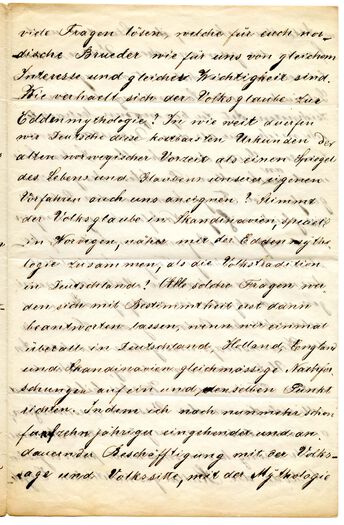 viele Fragen lösen, welche für euch nor-
dische Brueder wie für uns von gleichem
Interesse und gleicher Wichtigkeit sind.
Wie verhaelt sich der Volksglaube zur
Eddenmythologie? In wie weit duerfen
wir Deutsche diese kostbarsten Urkunden der
alten norwegischer Vorzeit als einen Spiegel
des Lebens und Glaubens unserer eigenen
Vorfahren auch uns aneignen? Stimmt
der Volksglaube in Skandinavien, speciell
in Norwegen, näher mit der Edden mytho-
logie zusammen, als die Volkstradition
in Deutschland? Alle solche Fragen wer-
den sich mit Bestimmtheit erst dann
beantworten lassen, wenn wir einmal
überall in Deutschland, Holland, England
und Skandinavien gleichmässige Nachfor-
schungen auf ein und denselben Punkt
richten. Indem ich nach nunmehr schon
funfzehn jähriger eingehender und an-
dauernder Beschäfftigung mit der Volks-
sage und Volkssitte, mit der Mythologie